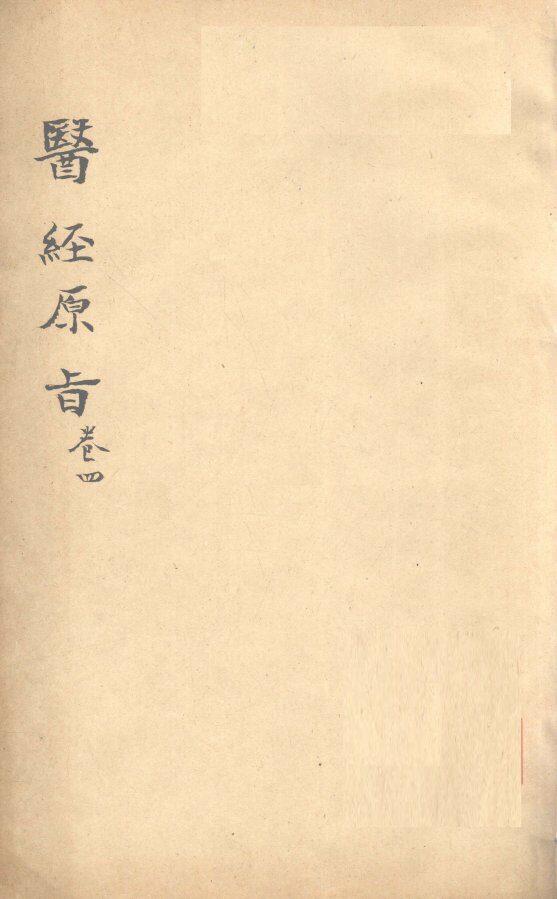 醫經原旨
卷四